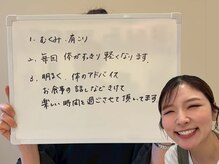 1. むくみ 肩こり
2. 毎回 体がすっきり 軽くなります
3. 明るく 体のアドバイス
お食事の話しなどさせて
楽しい時間を過ごさせて頂いてます